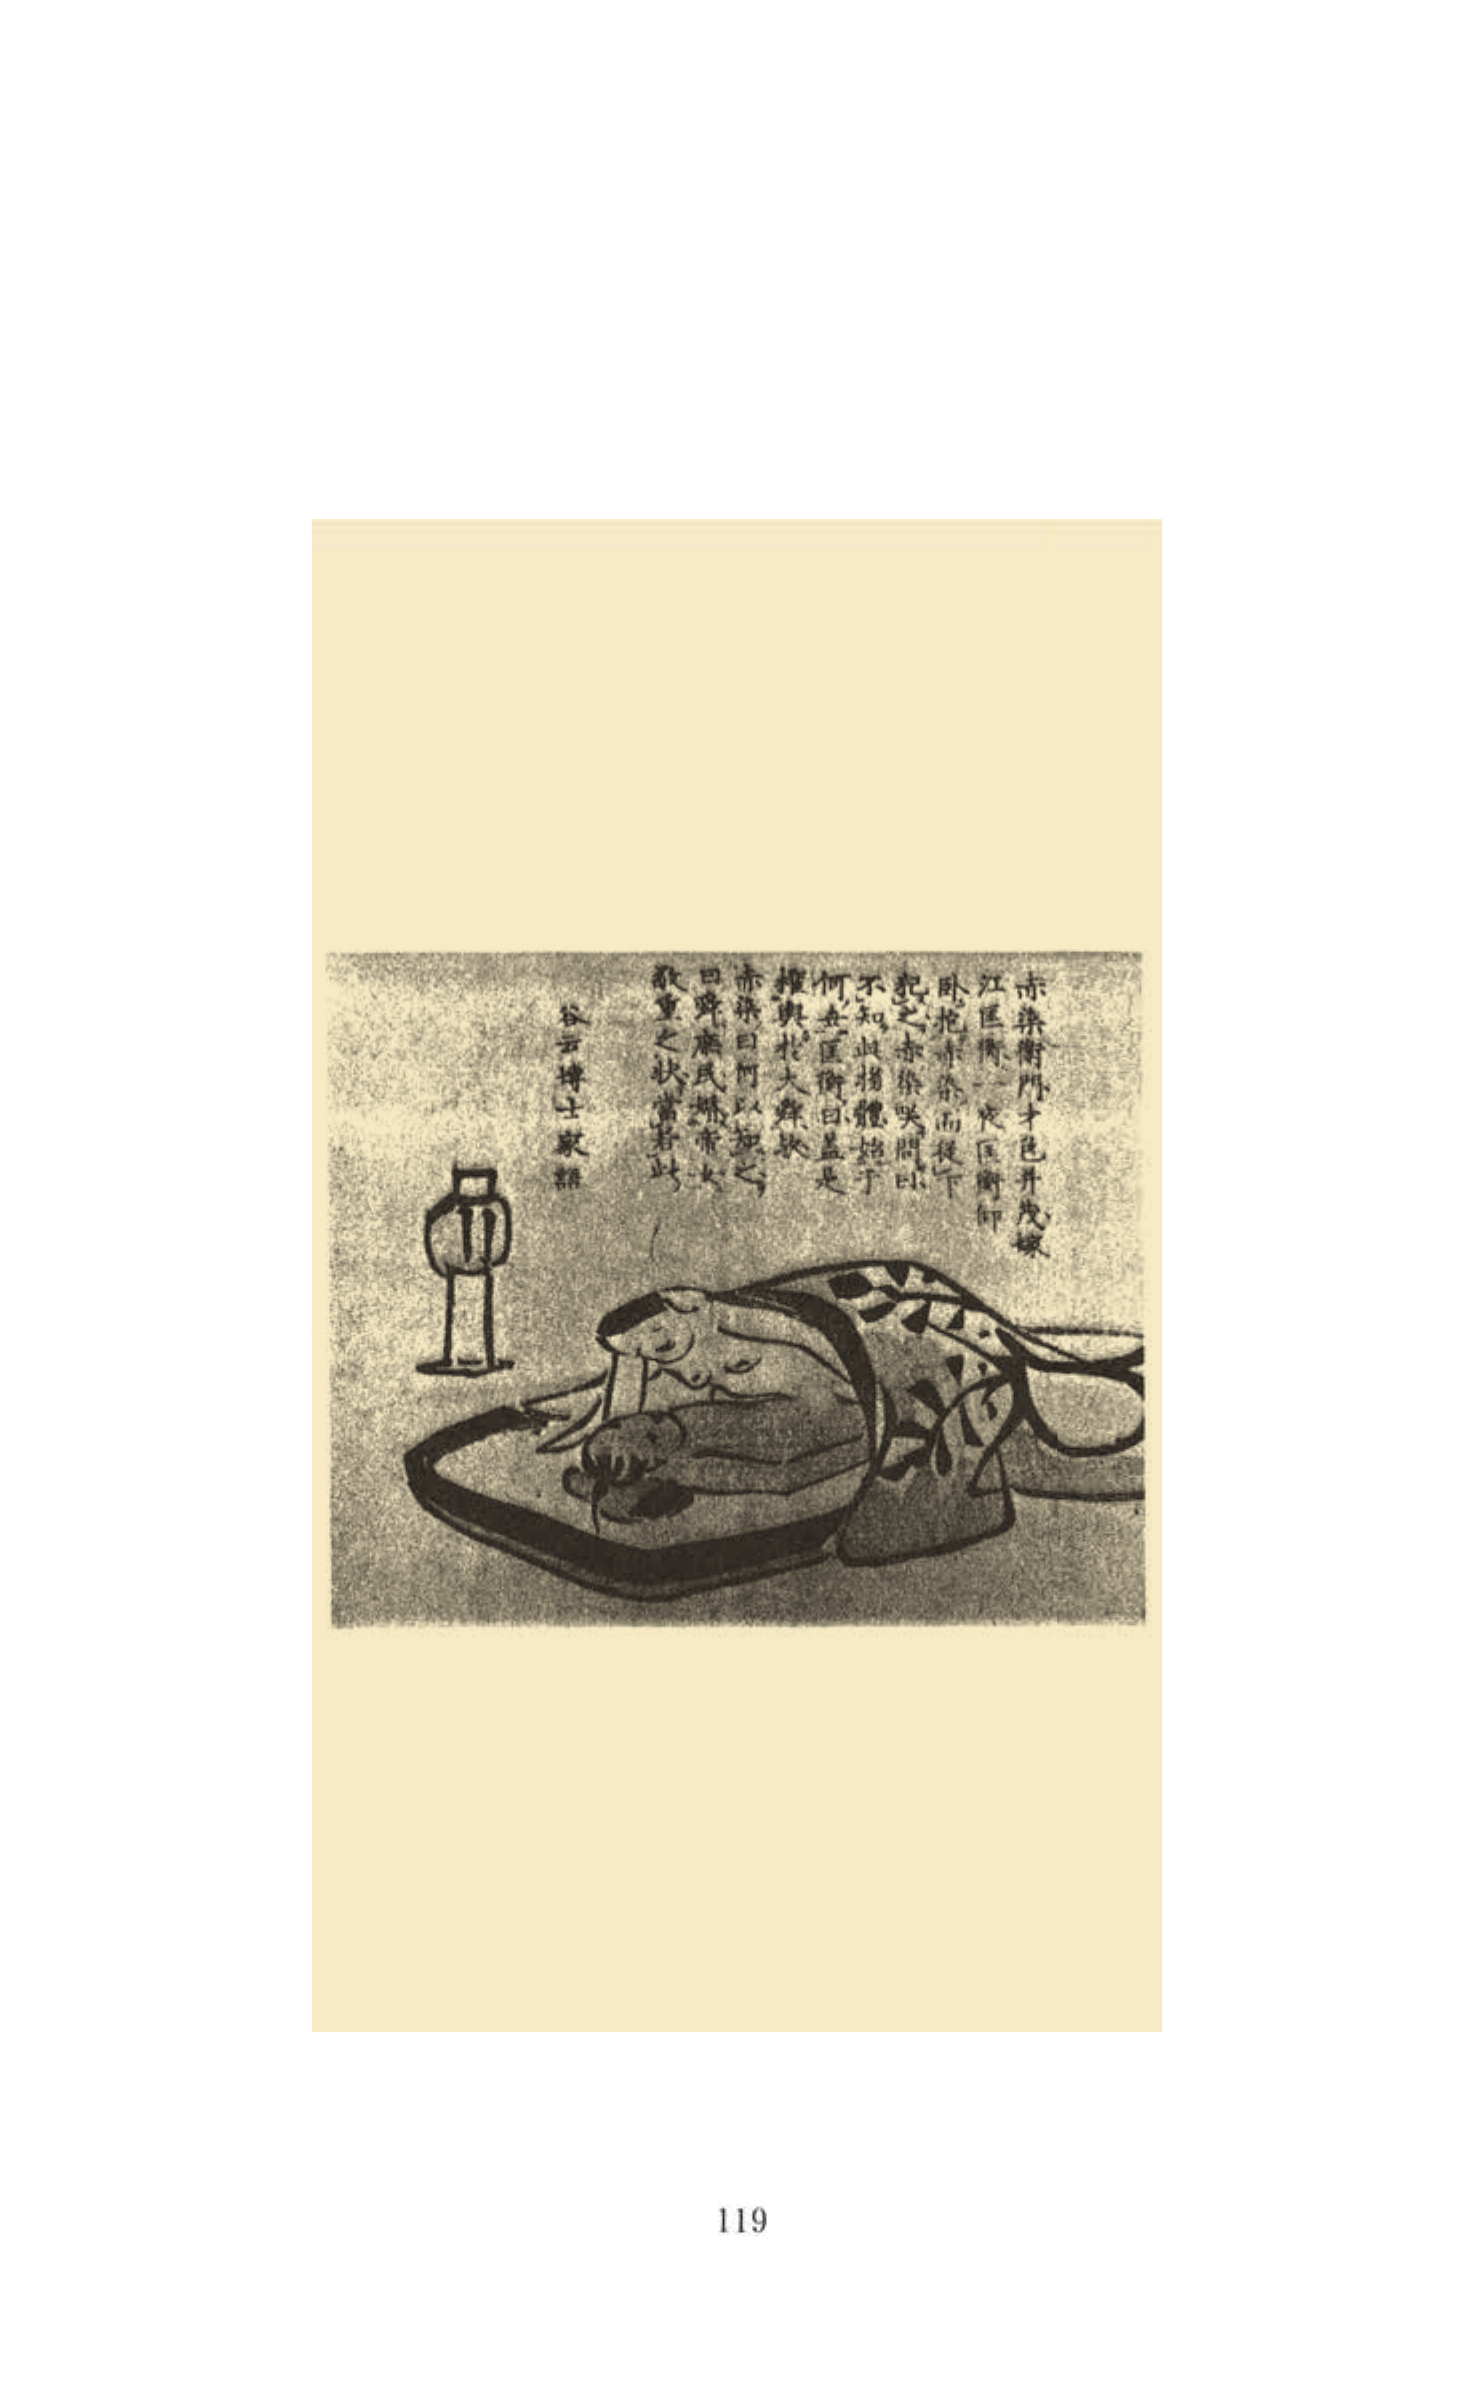 赤染衛門才色并茂嫁
江匡衡一夜匡衡仰
卧抱赤染而從下
犯之赤染咲問曰
不知此搨體始于
何去匡衡曰蓋是
權輿於大舜歟
赤染曰何以知之
曰舜庶民婚帝女
敬重之状當若此
谷云博士家語
119